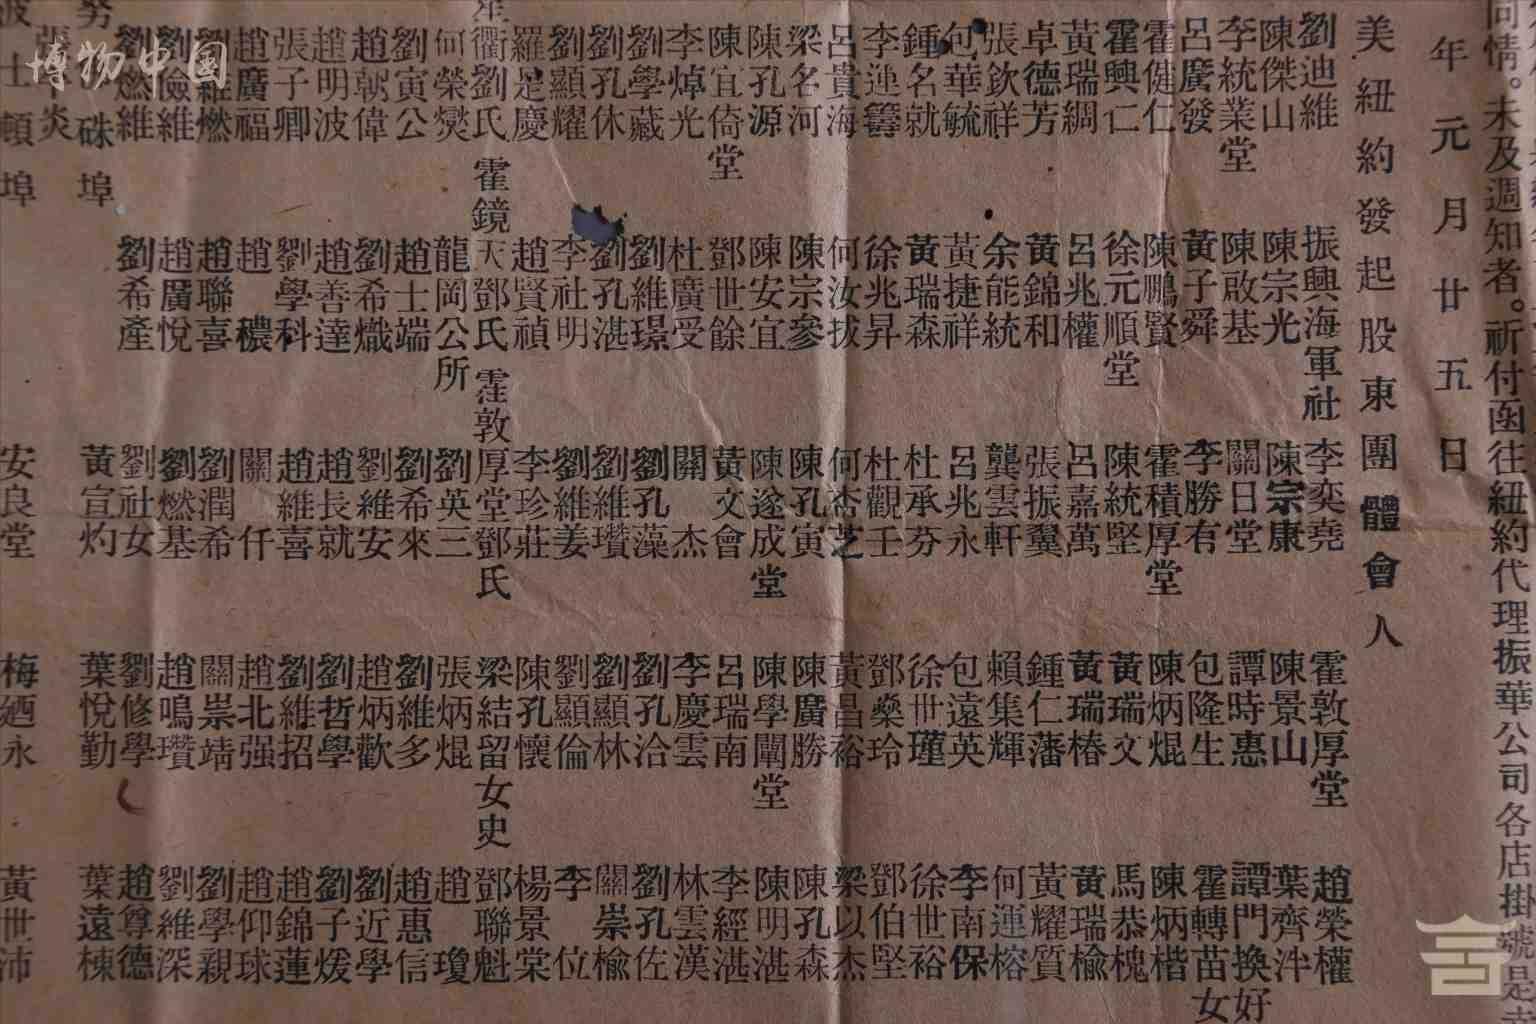 同情。未及週知者。祈付函往紐約代理振華公司各店掛號是
年元月廿五日
美紐約發起股東團體會人
劉迪維 振興海軍社 李奕堯 霍敦厚堂 趙榮權
陳傑山 陳宗光 陳宗康 陳景山 葉齊泮
李統業堂 陳啟基 關日堂 譚時惠 譚門換好
呂廣發 黃子舜 李勝有 包隆生 霍轉苗女
霍健仁 陳鵬賢 霍積厚堂 陳炳焜 陳炳楷
霍興仁 徐元順堂 陳統堅 黃瑞文 馬恭槐
黃瑞綢 呂兆權 呂嘉萬 黃瑞椿 黃瑞楡
卓德芳 黃錦和 張振翼 鍾仁藩 黃耀質
張欽祥 余能統 龔雲軒 賴集輝 何運榕
包華毓 黃捷祥 呂兆永 包遠英 李南保
鍾名就 黃瑞森 杜承芬 徐世瑾 徐世裕
李進籌 徐兆昇 杜觀壬 鄧燊玲 鄧伯堅
呂貴海 何汝拔 何杏芝 黃昌裕 梁以杰
梁名河 陳宗參 陳孔寅 陳廣勝 陳孔森
陳孔源 陳安宜 陳遂成堂 陳學闈堂 陳明湛
陳宜倚堂 鄧世餘 黃文會 呂瑞南 李經湛
李焯光 杜廣受 關杰 李慶雲 林雲漢
劉學藏 劉維璟 劉孔藻 劉孔洽 劉孔佐
劉孔休 劉孔湛 劉維瓚 劉顯林 關崇楡
劉顯耀 李社明 劉維姜 劉顯倫 李位
羅是慶 趙賢禎 李珍莊 陳孔懷 楊景棠
衢劉氏 霍鏡天鄧氏 霍敦厚堂鄧氏 梁結留女史 鄧聯魁
何榮爕 龍岡公所 劉英三 張炳焜 趙瓊
劉寅公 趙士端 劉希來 劉維多 趙惠信
趙朝偉 劉希熾 劉維安 趙炳歡 劉近學
趙明波 趙善達 趙長就 劉哲學 劉子煖
張子卿 劉學科 趙維喜 劉維招 趙錦蓮
趙廣福 趙穠 關仟 趙北强 趙仰球
劉維燃 趙聯喜 劉潤希 關崇靖 劉學親
劉儉維 趙廣悅 劉燃基 趙鳴瓚 劉維深
劉燃維 劉希產 劉社女 劉修學 趙尊德
硃埠 黃宣灼 葉悅勤 葉遠棟
張炎
波士頓埠 安良堂 梅廼永 黃世沛
博物中国